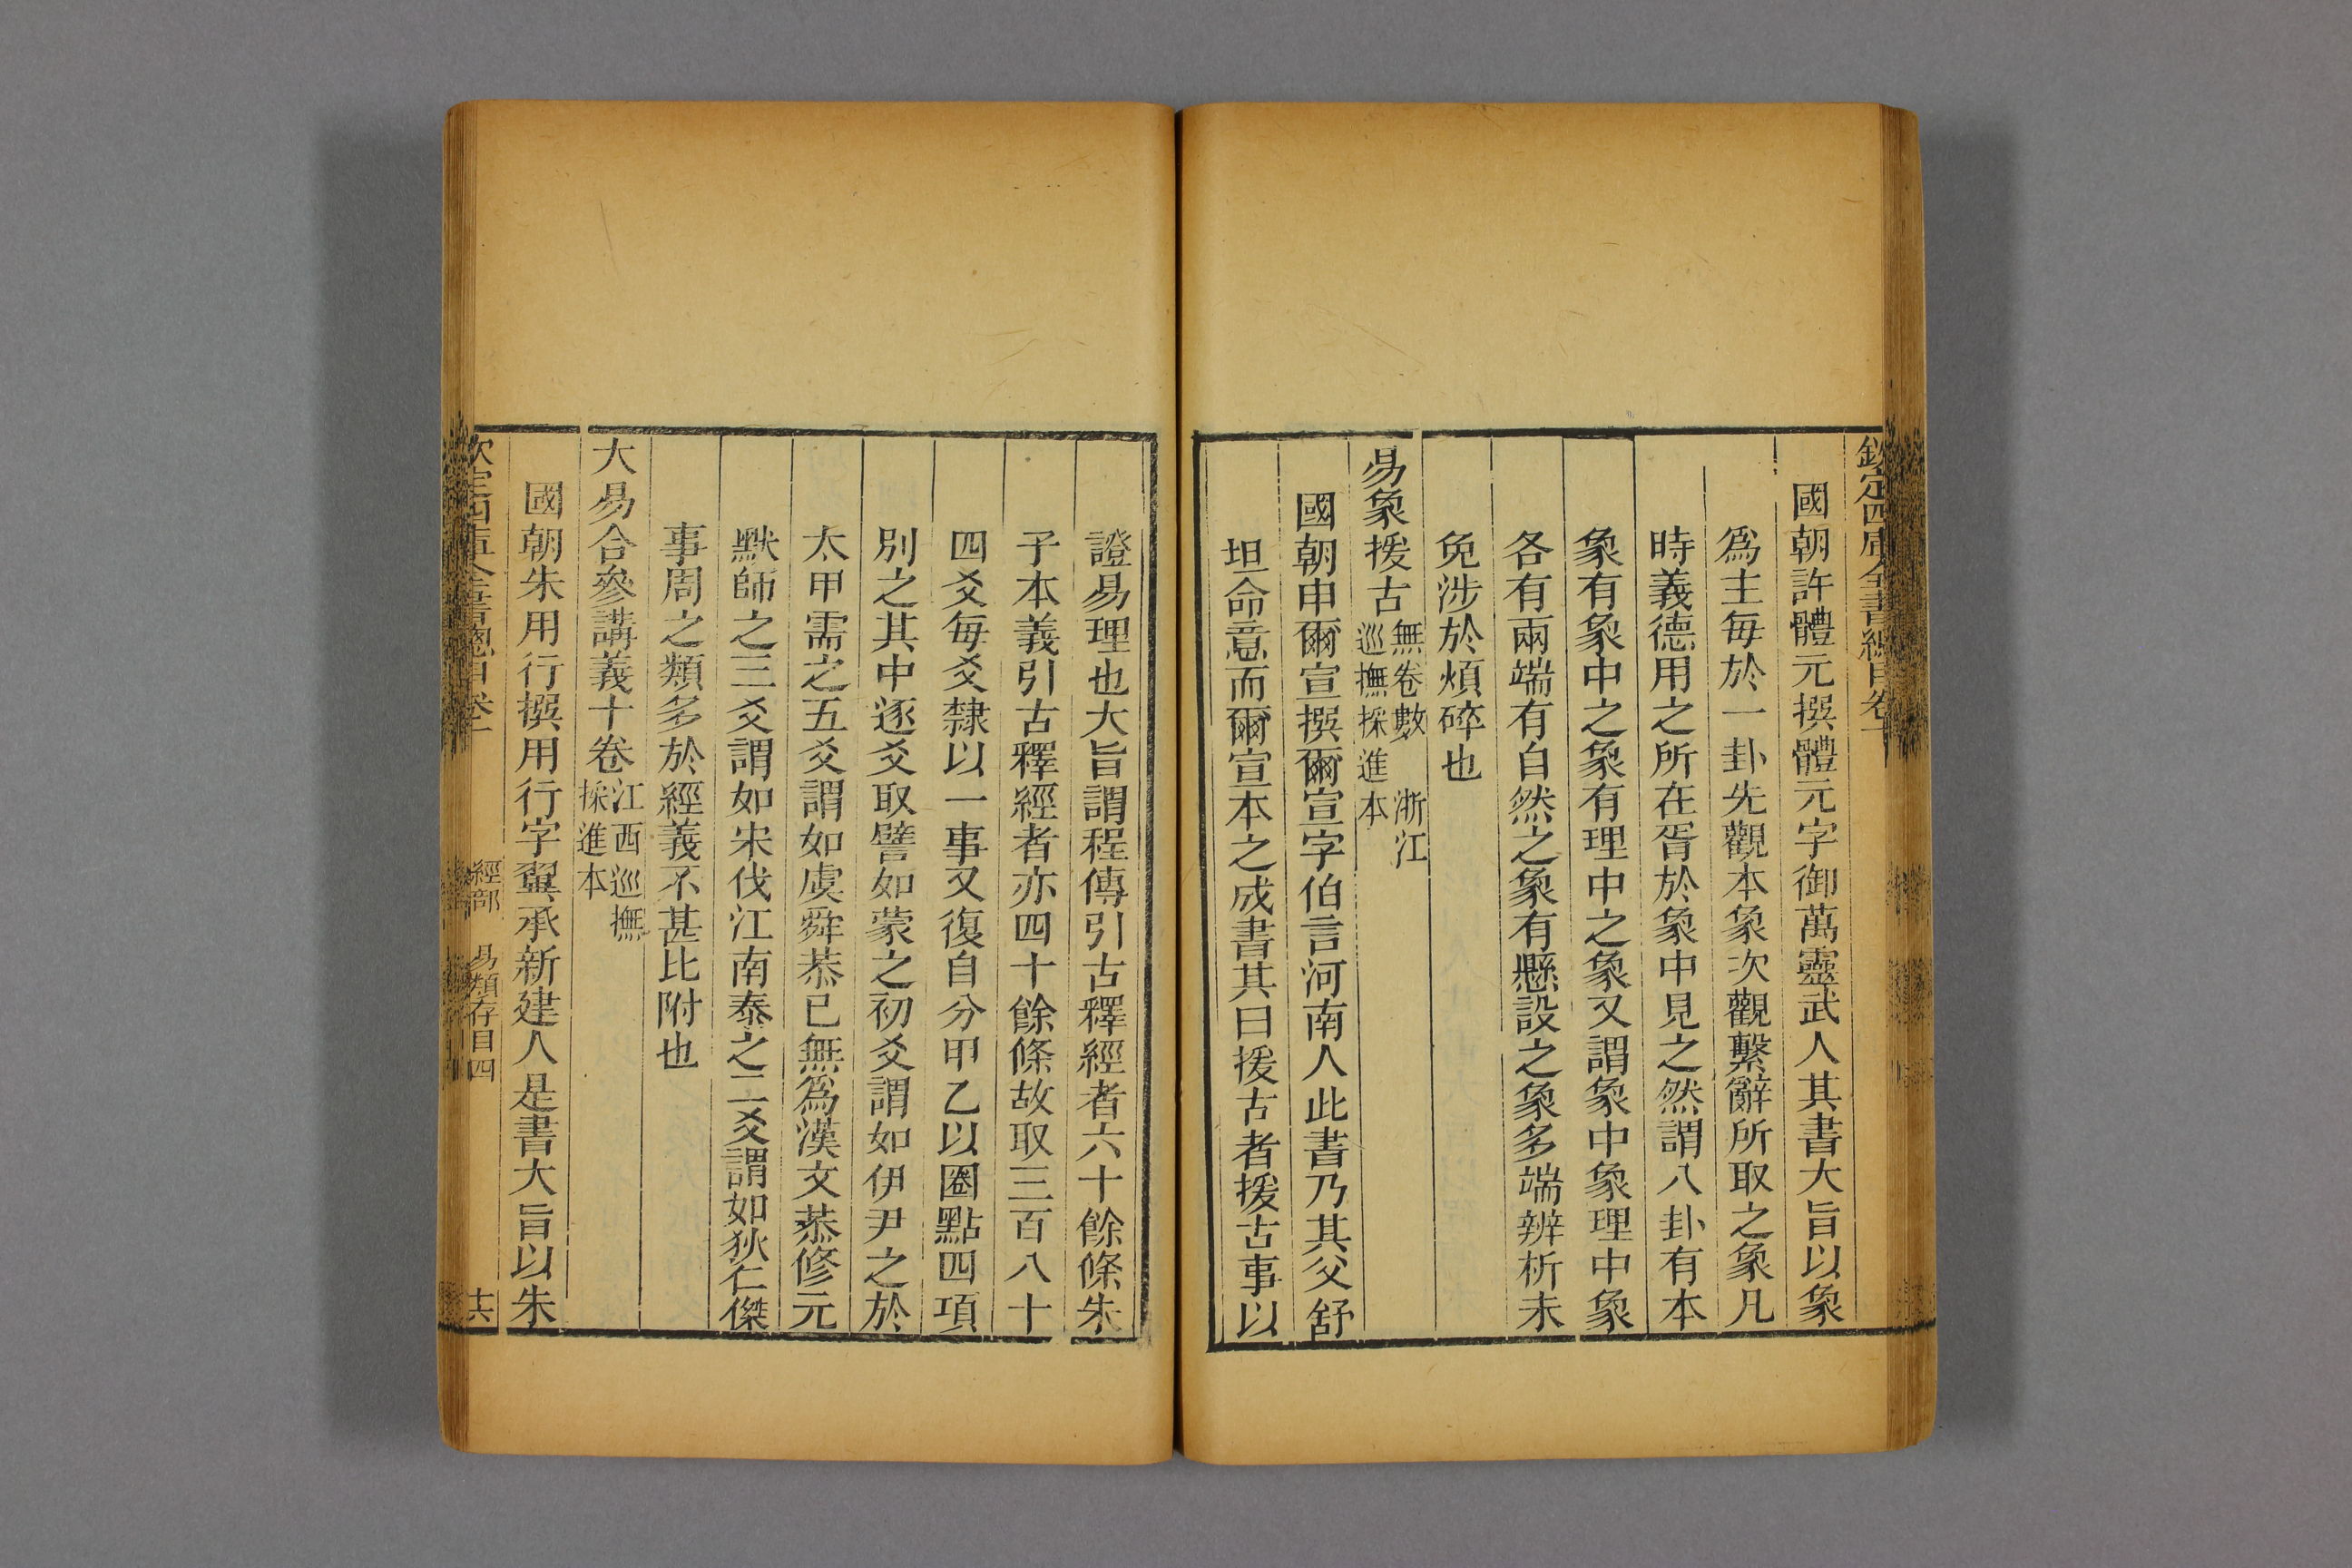 欽定四庫全書總目卷十
國朝許體元撰體元字御萬靈武人其書大旨以象
爲主每於一卦先觀本象次觀繫辭所取之象凡
時義德用之所在胥於象中見之然謂八卦有本
象有象中之象有理中之象又謂象中象理中象
各有兩端有自然之象有懸設之象多端辨析未
免涉於煩碎也
易象援古無卷數 浙江
巡撫採進本
國朝申爾宣撰爾宣字伯言河南人此書乃其父舒
坦命意而爾宣本之成書其曰援古者援古事以
證易理也大旨謂程傳引古釋經者六十餘條朱
子本義引古釋經者亦四十餘條故取三百八十
四爻每爻隸以一事又復自分甲乙以圈點四項
別之其中逐爻取譬如蒙之初爻謂如伊尹之於
太甲需之五爻謂如虞舜恭已無爲漢文恭修元
默師之三爻謂如宋伐江南泰之二爻謂如狄仁傑
事周之類多於經義不甚比附也
大易合參講義十卷江西巡撫
採進本
國朝朱用行撰用行字翼承新建人是書大旨以朱
經部 易類存目四
十六